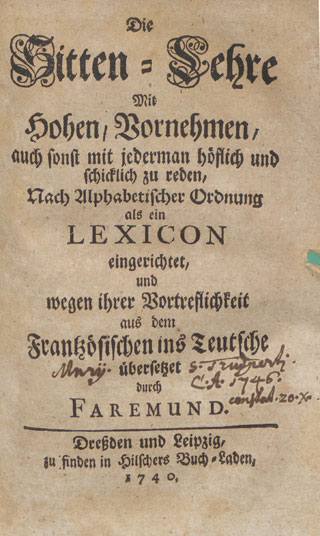 Die
Sitten-Lehre
Mit
Hohen, Vornehmen,
auch sonst mit jederman höflich und
schicklich zu reden,
Nach Alphabetischer Ordnung
als ein
LEXICON
eingerichtet,
und
wegen ihrer Vortreflichkeit
aus dem
Frantzösischen ins Teutsche
übersetzet
durch
C. A. 1746.
FAREMUND.
Dreßden und Leipzig,
zu finden in Hilschers Buch-Laden,
1740.